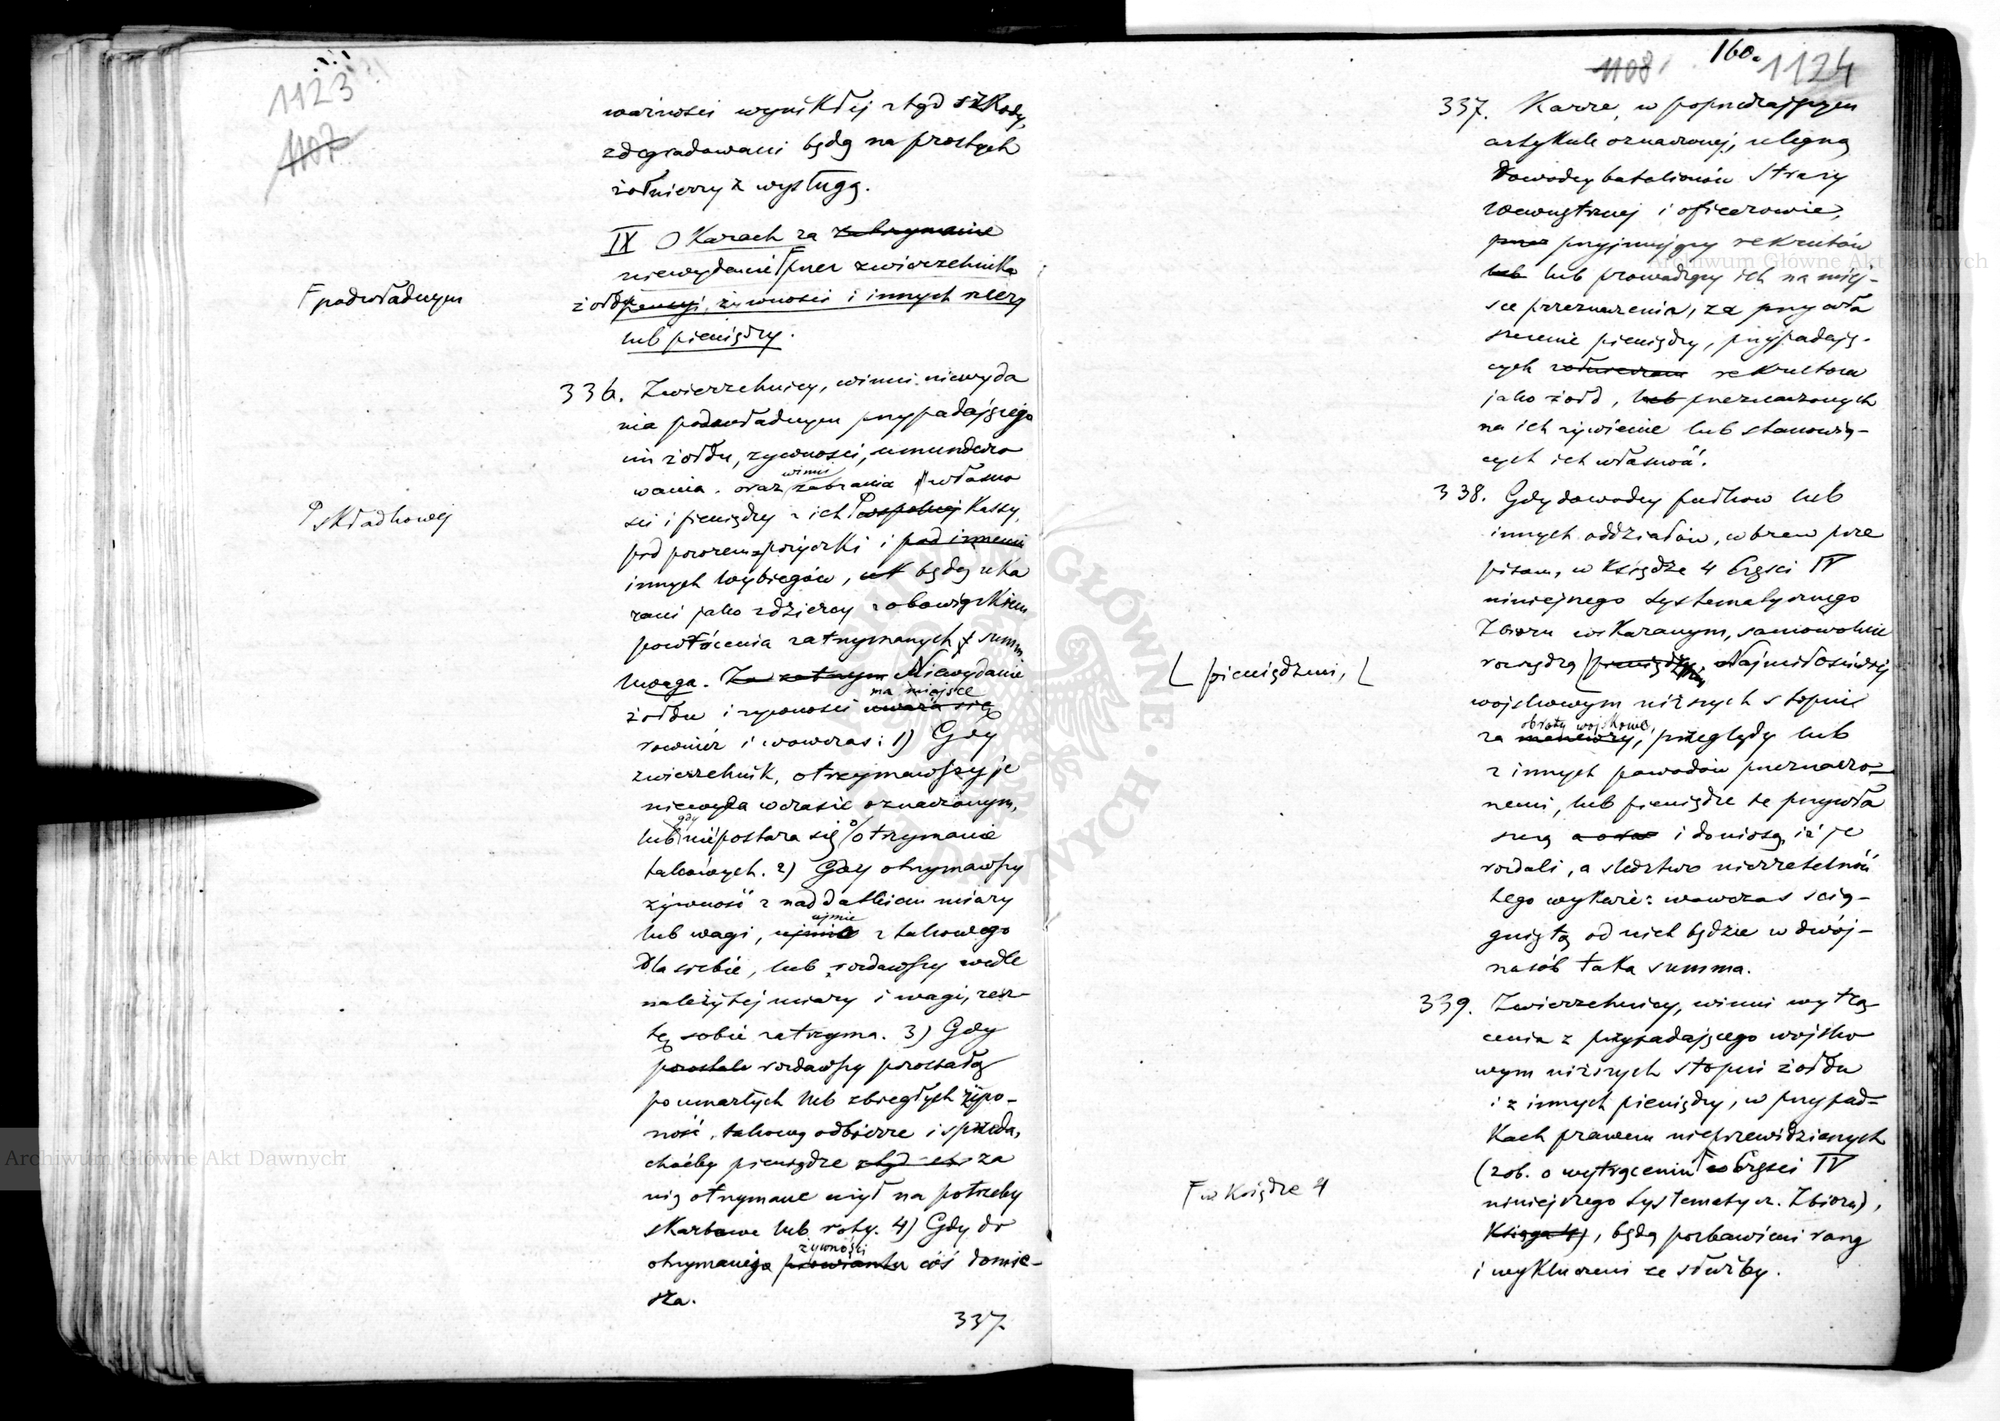 1123
1107
wartości wynikłej ztąd szkody,
zdegradowani będą na prostych
żołnierzy z wysługą.
IX O Karach za zatrzymanie
niewydanie Γ przez zwierzchnika
Γ podwładnym
żołdu pensyi, żywności i innych rzeczy
lub pieniędzy.
336. Zwierzchnicy, winni niewyda
nia podwładnym przypadającego
im żołdu, żywności, umundero
wania. oraz winni zabrania własno
ści i pieniędzy z ich wspólnej Kassy,
składkowej
pod pozorem pożyczki i pod innemi
innych wybiegów, będą uka
rani jako zdziercy z obowiązkiem
powrócenia zatrzymanych summ
Uwaga. Za zatrzym Niewydanie
na miejsce
żołdu i żywności uważa się
również i wowczas: 1) Gdy
zwierzchnik, otrzymawszy je
niewyda wczasie oznaczonym,
lub gdy niepostara się o otrzymanie
takowych. 2) Gdy otrzymawszy
żywność z naddatkiem miary
lub wagi, ujmie z takowego
dla siebie, lub rozdawszy wedle
należytej miary i wagi, resz-
tę sobie zatrzyma. 3) Gdy
pozostałe rozdawszy pozostałą
po umarłych lub zbiegłych żywo-
ność, takową odbierze i sprzeda,
choćby pieniądze ztąd za
nią otrzymane użył na potrzeby
skarbowe lub roty. 4) Gdy do
żywności
otrzymanego prowiantu coś domie-
sza.
337.
1108
160.
1124
337. Karze, w poprzedzającym
artykule oznaczonej, ulegną
Dowodcy batalionów Straży
wewnętrznej i oficerowie,
przyjmujący rekrutów
lub lub prowadzący ich na miej-
sce przeznaczenia, za przywła
szczenie pieniędzy, przypadają-
cych żołnierzom rekrutom
jako żołd, lub przeznaczonych
na ich żywienie lub stanowią-
cych ich własność.
338. Gdy dowodcy pułków lub
innych oddziałów, wbrew prze
pisom, w Księdze 4 Części IV
niniejszego Systematycznego
Zbioru wskazanym, samowolnie
rozrządzą pieniędzmi, Najmiłościwiej
pieniędzmi,
wojskowym niższych stopni
obroty wojskowe,
za manewry, przeglądy lub
z innych powodów przeznaczo-
nemi, lub pieniądze te przywła
szczą a i doniosą, iż je
rozdali, a śledztwo nierzetelność
tego wykaże: wowczas ścią-
gniętą od nich będzie w dwój-
nasób taka summa.
339. Zwierzchnicy, winni wytrą-
cenia z przypadającego wojsko
wym niższych stopni żołdu
i z innych pieniędzy, w przypad-
kach prawem nieprzewidzianych
(zob. o wytrąceniu Γ w Części IV
Γ w Księdze 4
niniejszego Systematycz. Zbioru),
Księga 4), będą pozbawieni rang
i wykluczeni ze służby.
Archiwum Główne Akt Dawnych
Archiwum Główne Akt Dawnych